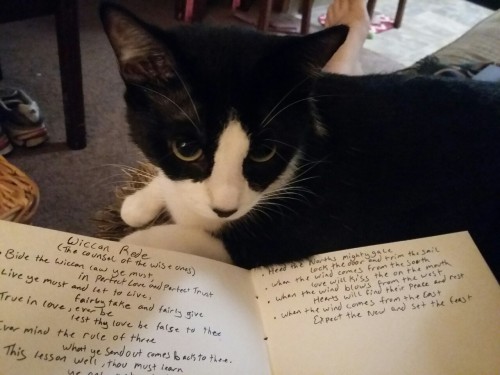 Wiccan Rede
(The counsel of the wise ones)
• Bide the Wiccan Law ye must,
in Perfect Love and Perfect Trust
Live ye must and let to live,
fairly take and fairly give
True in Love, ever be
lest thy love be false to thee
Ever mind the rule of three
what ye send out comes back to three.
This lesson well, thou must learn
ye only
• Heed the North's mighty gale,
lock the door and trim the sail
• when the wind comes from the south
love will kiss thee on the mouth
• when the wind blows from the west
Hearts will find their peace and rest
• when the wind comes from the East
Expect the New and set the feast